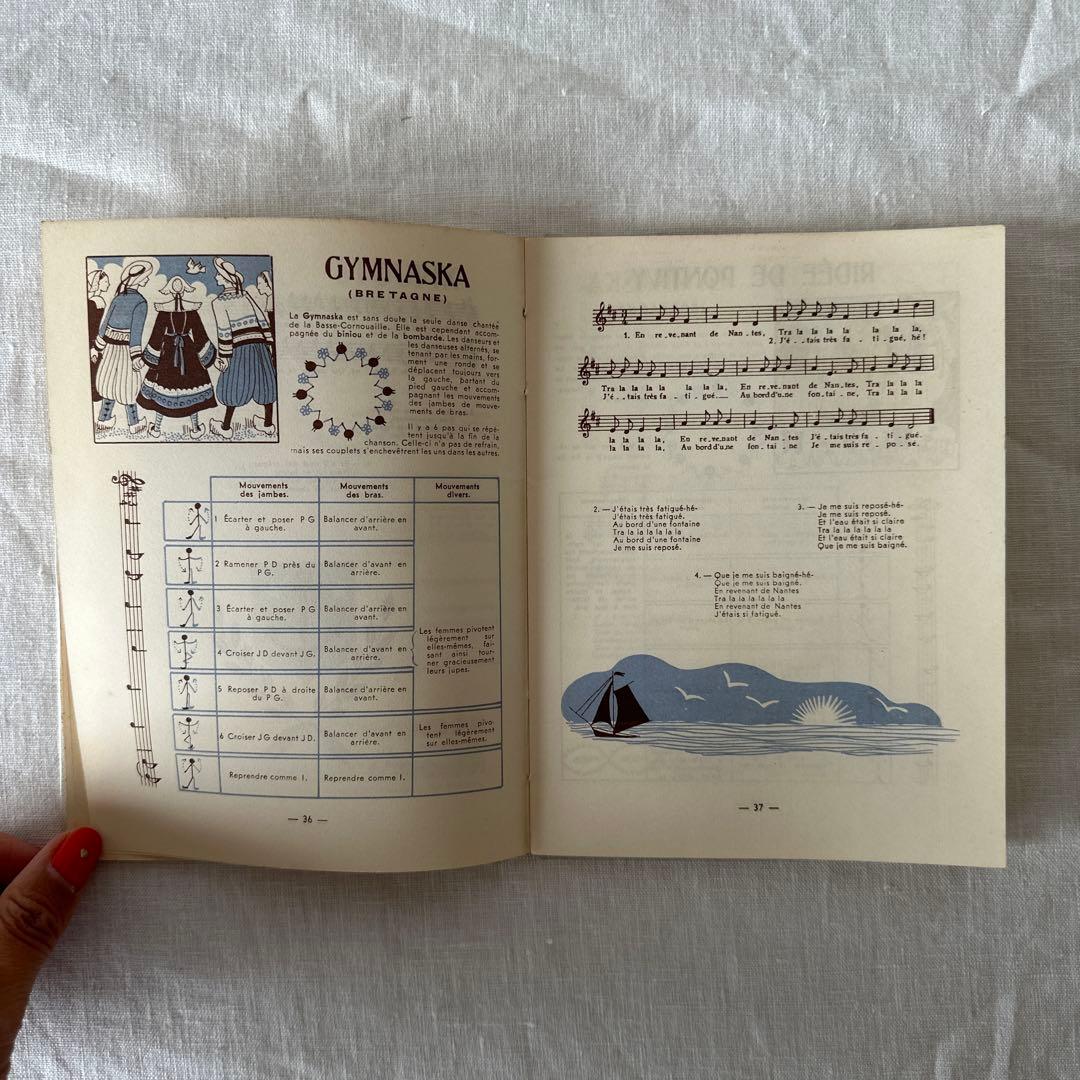 GYMNASKA
(BRETAGNE)
La Gymnaska est sans doute la seule danse chantée
de la Basse-Cornouaille. Elle est cependant accom-
pagnée du biniou et de la bombarde. Les danseurs et
les danseuses alternés, se
tenant par les mains, for-
ment une ronde et se
déplacent toujours vers
la gauche, partant du
pied gauche et accom-
pagnant les mouvements
des jambes de mouve-
ments de bras.
Il y a 6 pas qui se répè-
tent jusqu'à la fin de la
chanson. Celle-ci n'a pas de refrain,
mais ses couplets s'enchevêtrent les uns dans les autres.
Mouvements des jambes.
Mouvements des bras.
Mouvements divers.
1 Écarter et poser P G
à gauche.
Balancer d'arrière en
avant.
2 Ramener P D près du
P G.
Balancer d'avant en
arrière.
3 Écarter et poser P G
à gauche.
Balancer d'arrière en
avant.
4 Croiser J D devant J G.
Balancer d'avant en
arrière.
Les femmes pivotent
légèrement sur
elles-mêmes, fai-
sant ainsi tour-
ner gracieusement
leurs jupes.
5 Reposer P D à droite
du P G.
Balancer d'arrière en
avant.
6 Croiser J G devant J D.
Balancer d'avant en
arrière.
Les femmes pivo-
tent légèrement
sur elles-mêmes.
Reprendre comme 1.
Reprendre comme 1.
— 36 —
1. En re_ve_nant de Nan_tes, Tra la la la la la la la,
2. J'é_ _tais très fa _ ti _ gué, hé!
Tra la la la la la la la, En re_ve_nant de Nan_tes, Tra la la la
J'é_ _tais très fa _ ti _ gué__ Au bord d'u_ne fon_tai _ ne, Tra la la la
la la la la, En re_ve_nant de Nan_tes J'é_tais très fa _ ti _ gué.
la la la la, Au bord d'u_ne fon_tai _ ne Je me suis re _ po _ sé.
2. — J'étais très fatigué-hé-
J'étais très fatigué.
Au bord d'une fontaine
Tra la la la la la la
Au bord d'une fontaine
Je me suis reposé.
3. — Je me suis reposé-hé-
Je me suis reposé.
Et l'eau était si claire
Tra la la la la la la
Et l'eau était si claire
Que je me suis baigné.
4. — Que je me suis baigné-hé-
Que je me suis baigné.
En revenant de Nantes
Tra la la la la la la
En revenant de Nantes
J'étais si fatigué.
— 37 —